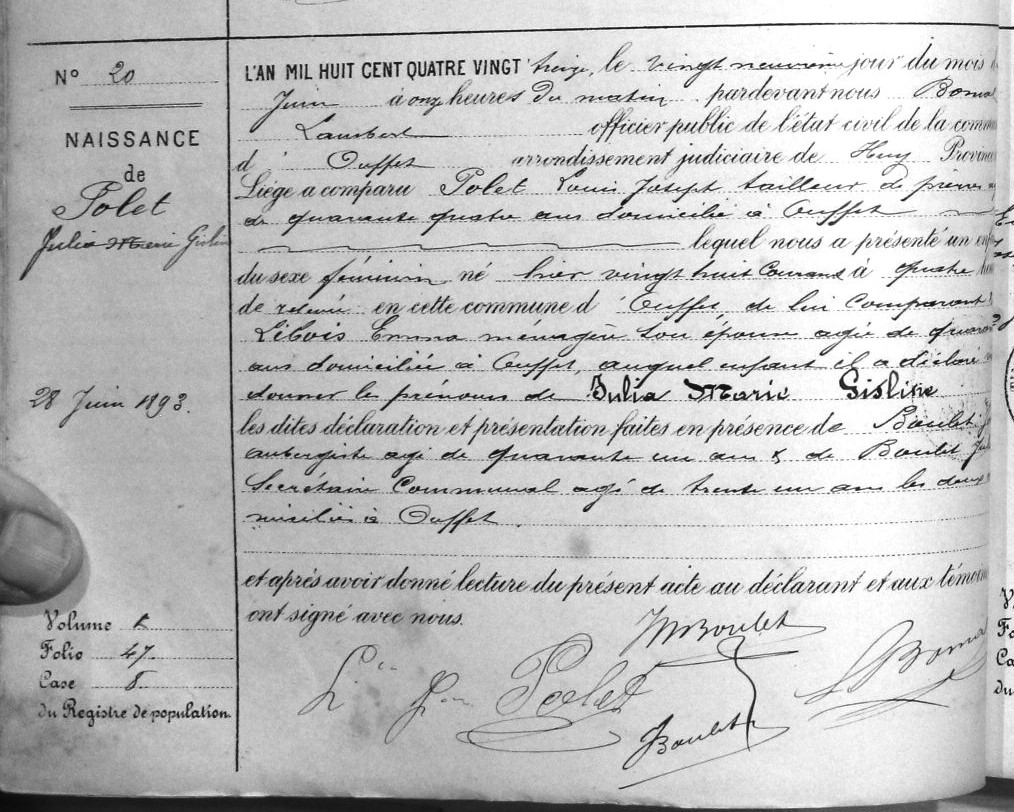 N° 20
NAISSANCE
de
Polet
Julia Marie Gislin
28 Juin 1893.
Volume
Folio 47
Case 8
du Registre de population.
L'AN MIL HUIT CENT QUATRE VINGT treize, le vingt neuvième jour du mois
Juin à onze heures du matin pardevant nous Boma
Lambert officier public de l'état civil de la comm
d' Ouffet arrondissement judiciaire de Huy Province
Liége a comparu Polet Louis Joseph tailleur de pierres
de quarante quatre ans domicilié à Ouffet
lequel nous a présenté un enf
du sexe féminin né hier vingt huit courant à quatre
de relevée en cette commune d' Ouffet, de lui comparant &
Libois Emma ménagère son épouse agée de quaran
ans domiciliée à Ouffet, auquel enfant il a déclaré
donner les prénoms de Julia Marie Gisline
les dites déclaration et présentation faites en présence de Boulet
aubergiste agé de quarante un ans & de Boulet
Secrétaire Communal agé de trente un ans les deux
miciliés à Ouffet.
et après avoir donné lecture du présent acte au déclarant et aux témoin
ont signé avec nous.
Boulet
Polet
Boma
JBoulet